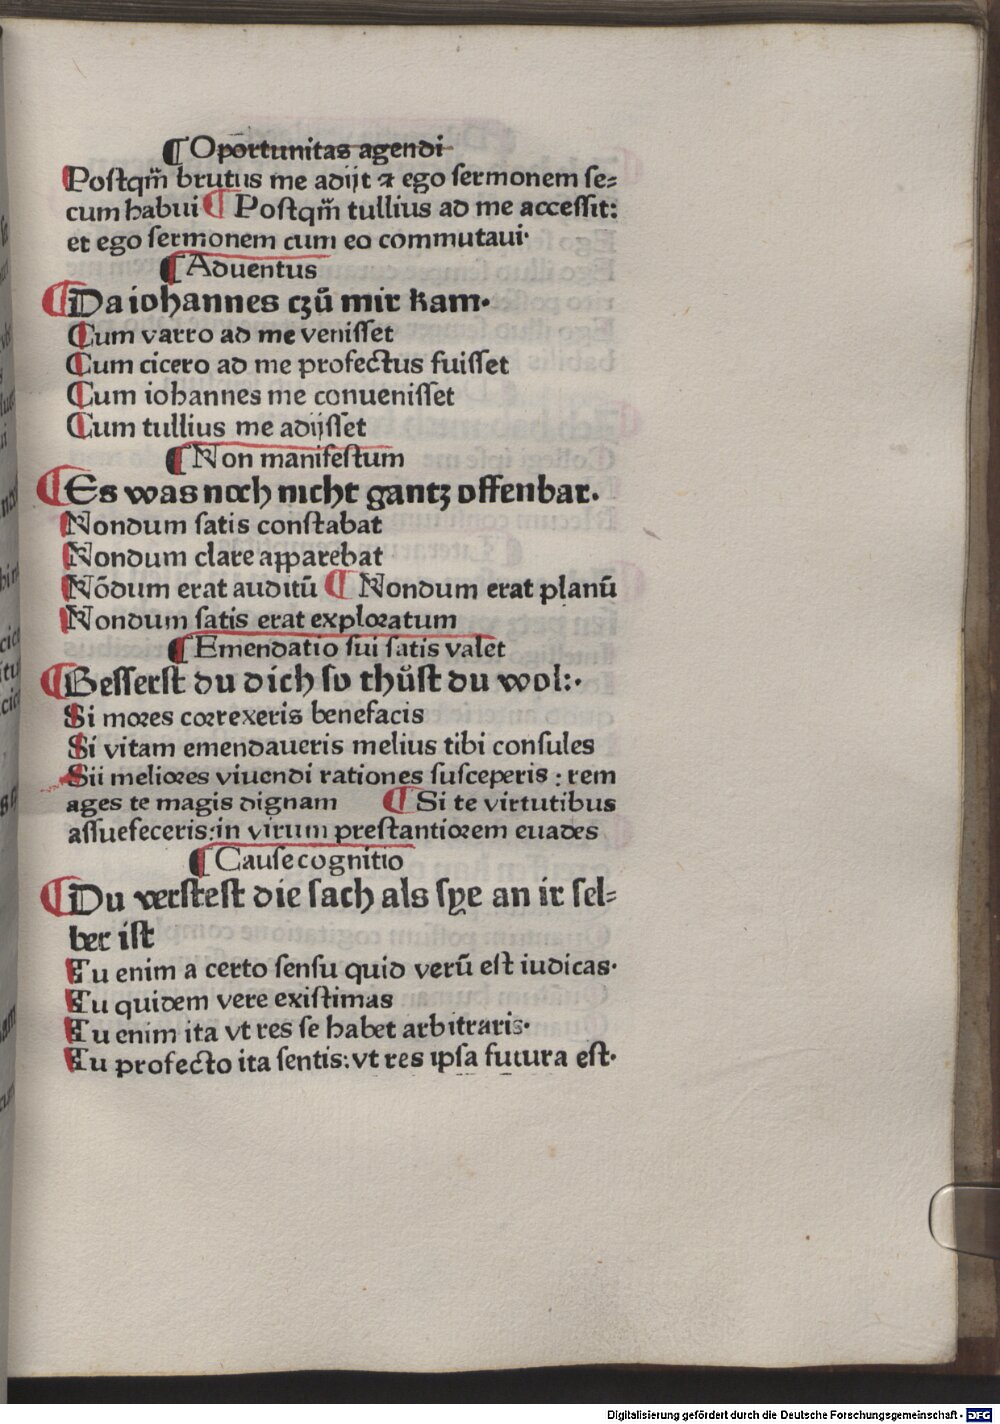 ¶ Opo̅rtunitas agendi
Postqm̅ brutus me adijt ⁊ ego sermonem se⸗
cum habui ¶ Postqm̅ tullius ad me accessit:
et ego sermonem cum eo commutaui·
¶ Aduentus
¶ Da iohannes czů mir kam·
Cum varro ad me venisset
Cum cicero ad me profectus fuisset
Cum iohannes me conuenisset
Cum tullius me adijsset
¶ Non manifestum
¶ Es was noch nicht gantz offenbar.
Nondum satis constabat
Nondum clare apparebat
Nōdum erat auditū ¶ Nondum erat planū
Nondum satis erat exploratum
¶ Emendatio sui satis valet
¶ Besserst du dich so thůst du wol:·
Si mores correxeris benefacis
Si vitam emendaueris melius tibi consules
Sii meliores viuendi rationes susceperis : rem
ages te magis dignam ¶ Si te virtutibus
assuefeceris:in virum prestantiorem euades
¶ Cause cognitio
¶ Du verstest die sach als sye an ir sel⸗
ber ist
Tu enim a certo sensu quid verū est iudicas·
Tu quidem vere existimas
Tu enim ita vt res se habet arbitraris·
Tu profecto ita sentis: vt res ipsa futura est·
Digitalisierung gefördert durch die Deutsche Forschungsgemeinschaft - DFG